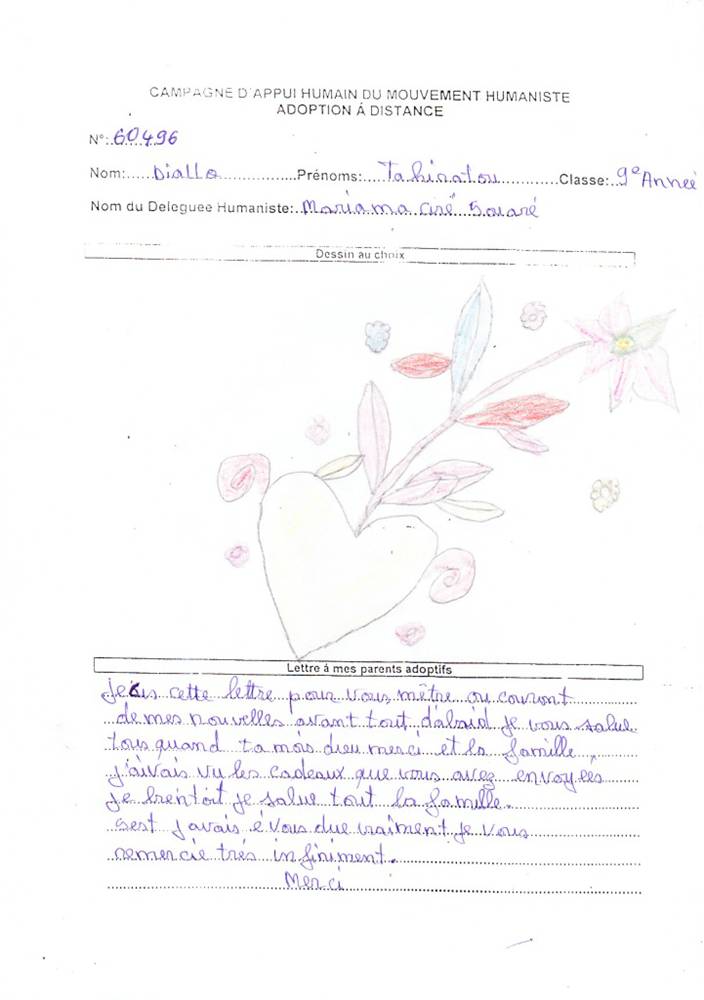 CAMPAGNE D'APPUI HUMAIN DU MOUVEMENT HUMANISTE
ADOPTION Á DISTANCE
N°: 60496
Nom: Diallo Prénoms: Tahiratou Classe: 9e Anneé
Nom du Deleguee Humaniste: Mariama Ciré Souaré
Dessin au choix
Lettre á mes parents adoptifs
cette lettre pour vous mêtre ou couront
de mes nouvelles avant tout d'abaid je vous salue
tous quand ta mois dieu merci et la famille,
j'aivais vu les cadeaux que vous avez envoyées
je brentoit je salue tout la famille.
sest javais é vous due vraiment je vous
remercie trés infiniment.
Merci